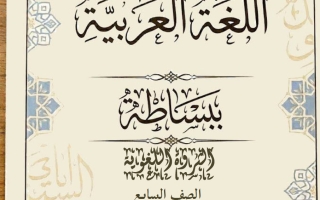 اللُّغَةُ العَرَبِيَّةُ
بِبَسَاطَةٍ
الثروة اللغوية
الصف السابع